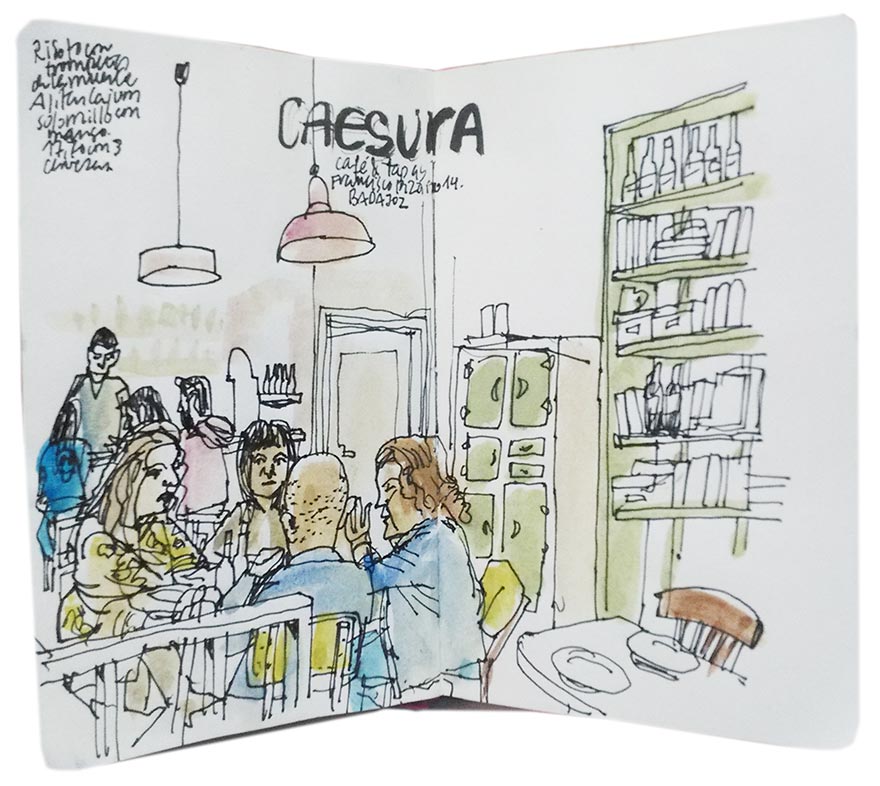 Risotto con
trompetas
de la muerte
Alitas Cajun
solomillo con
mango.
17,70 con 3
cervezas
CAESURA
café & tapas
Francisco Pizarro 14.
BADAJOZ